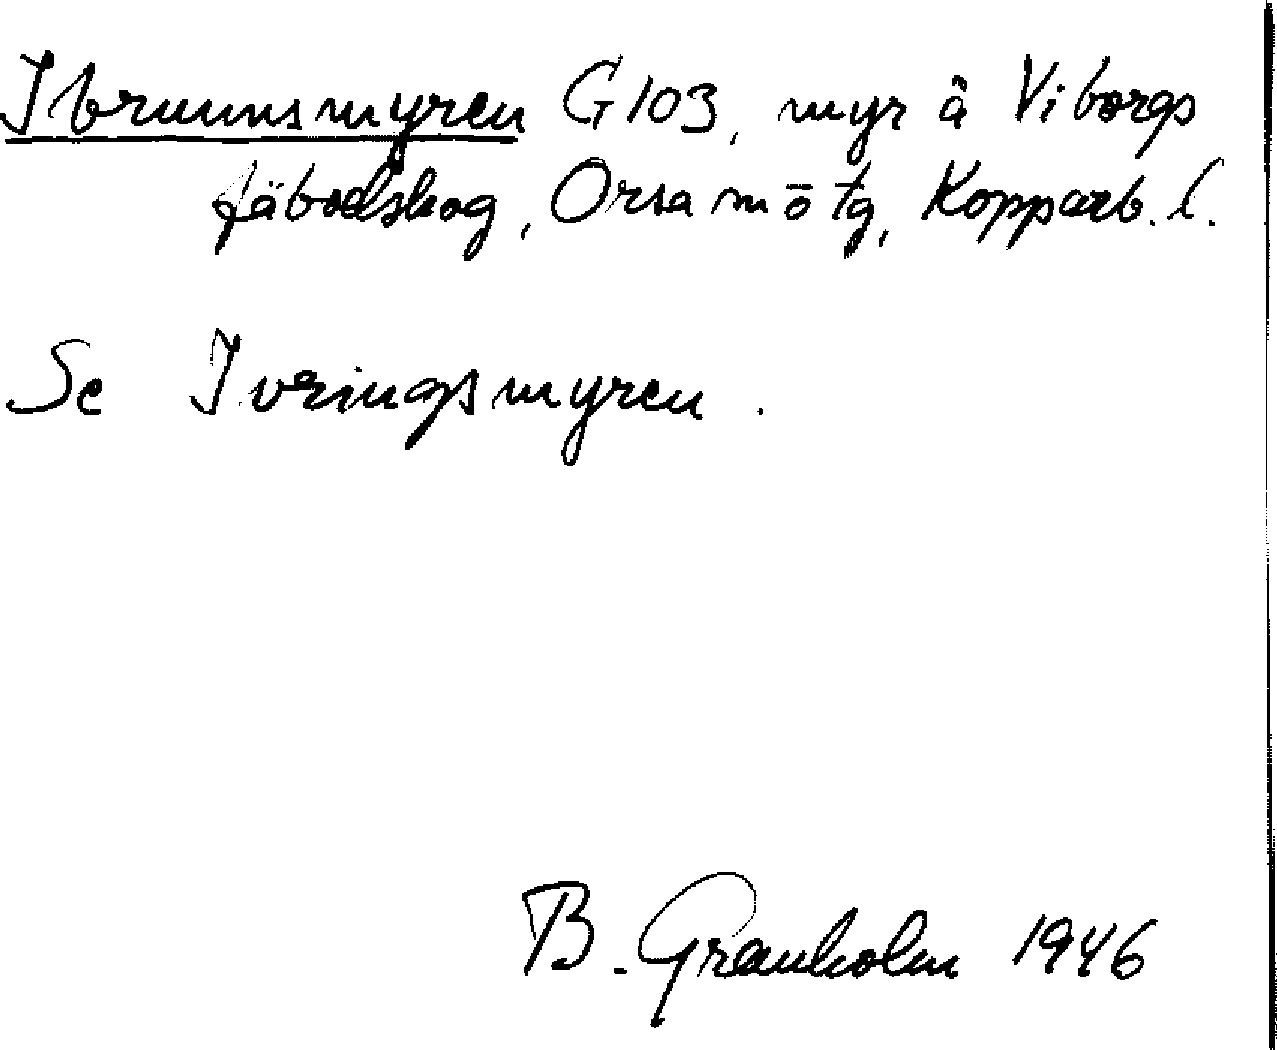 Ibrunnsmyren G103, myr å Viborgs
fäbodskog, Orsa mō tg, Kopparb. l.
Se Ivringsmyren.
B. Granholm 1946